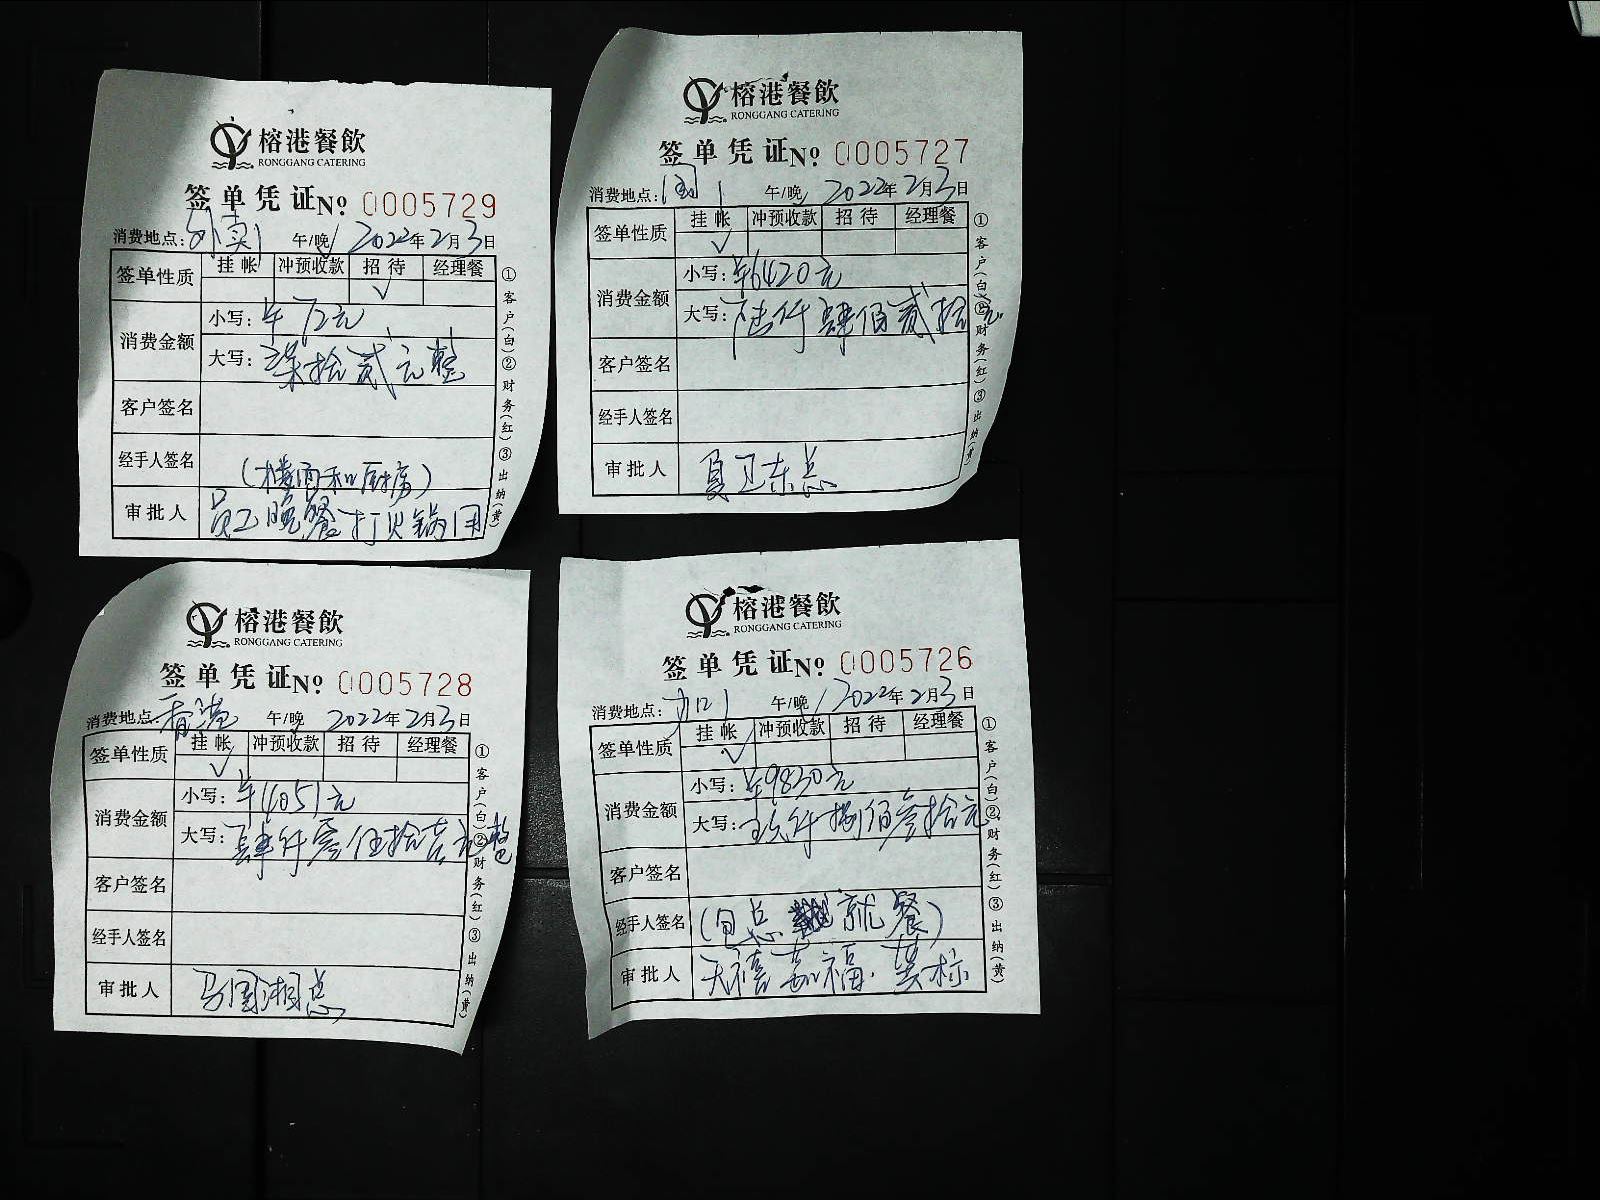 榕港餐飲
RONGGANG CATERING
签单凭证No 0005729
消费地点：外卖1 午/晚 2022年2月3日
签单性质 挂帐 冲预收款 招待 经理餐
✓
消费金额
小写：¥72元
大写：柒拾贰元整
客户签名
经手人签名 (楼面和厨房)
审批人 员工晚餐打火锅用
①客户(白)②财务(红)③出纳(黄)
榕港餐飲
RONGGANG CATERING
签单凭证No 0005727
消费地点：国1 午/晚 2022年2月3日
签单性质 挂帐 冲预收款 招待 经理餐
✓
消费金额
小写：¥6420元
大写：陆仟肆佰贰拾元
客户签名
经手人签名
审批人 夏卫东总
①客户(白)②财务(红)③出纳(黄)
榕港餐飲
RONGGANG CATERING
签单凭证No 0005728
消费地点：香港 午/晚 2022年2月3日
签单性质 挂帐 冲预收款 招待 经理餐
✓
消费金额
小写：¥4051元
大写：肆仟零伍拾壹元整
客户签名
经手人签名
审批人 马国湘总
①客户(白)②财务(红)③出纳(黄)
榕港餐飲
RONGGANG CATERING
签单凭证No 0005726
消费地点： 午/晚 2022年2月3日
签单性质 挂帐 冲预收款 招待 经理餐
✓
消费金额
小写：¥9830元
大写：玖仟捌佰叁拾元
客户签名
经手人签名 总 就餐)
审批人 天禧嘉福
①客户(白)②财务(红)③出纳(黄)